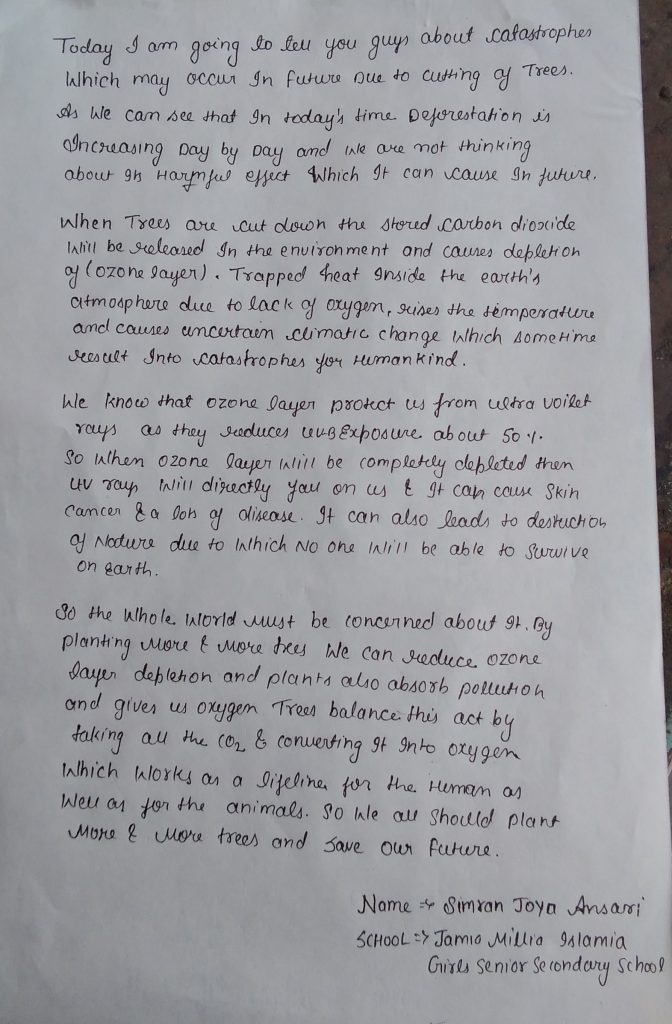 Today I am going to tell you guys about catastrophes
Which may occur In future Due to cutting of Trees.
As We can see that In today's time Deforestation is
Increasing Day by Day and We are not thinking
about Its Harmful effect Which It can cause In future.
When Trees are cut down the stored carbon dioxide
Will be released In the environment and causes depletion
of (ozone layer). Trapped heat Inside the earth's
atmosphere due to lack of oxygen, rises the temperature
and causes uncertain climatic change Which sometime
result Into catastrophes for Humankind.
We know that ozone layer protect us from ultra voilet
rays as they reduces UVB Exposure about 50%.
So When ozone layer Will be completely depleted then
UV rays Will directly fall on us & It can cause Skin
Cancer & a lots of disease. It can also leads to destuction
of Nature due to Which No one Will be able to Survive
on Earth.
So the Whole World must be concerned about It. By
planting More & More trees We can reduce ozone
layer depletion and plants also absorb pollution
and gives us oxygen Trees balance this act by
taking all the CO2 & converting It Into oxygen
Which Works as a lifeline for the Human as
Well as for the animals. So We all Should plant
More & More trees and Save our future.
Name => Simran Joya Ansari
SCHOOL => Jamia Millia Islamia
Girls Senior Secondary School